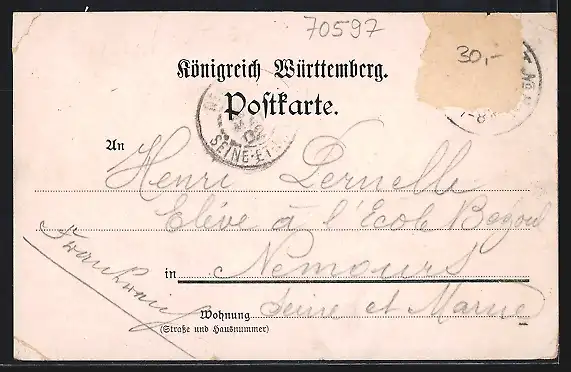 70597
30,-
Königreich Württemberg.
Postkarte.
SEINE-ET-
An
Henri Pernelle
Elève à l'Ecole Bezout
in Nemours
Seine et Marne
Wohnung
(Straße und Hausnummer)
Frankreich